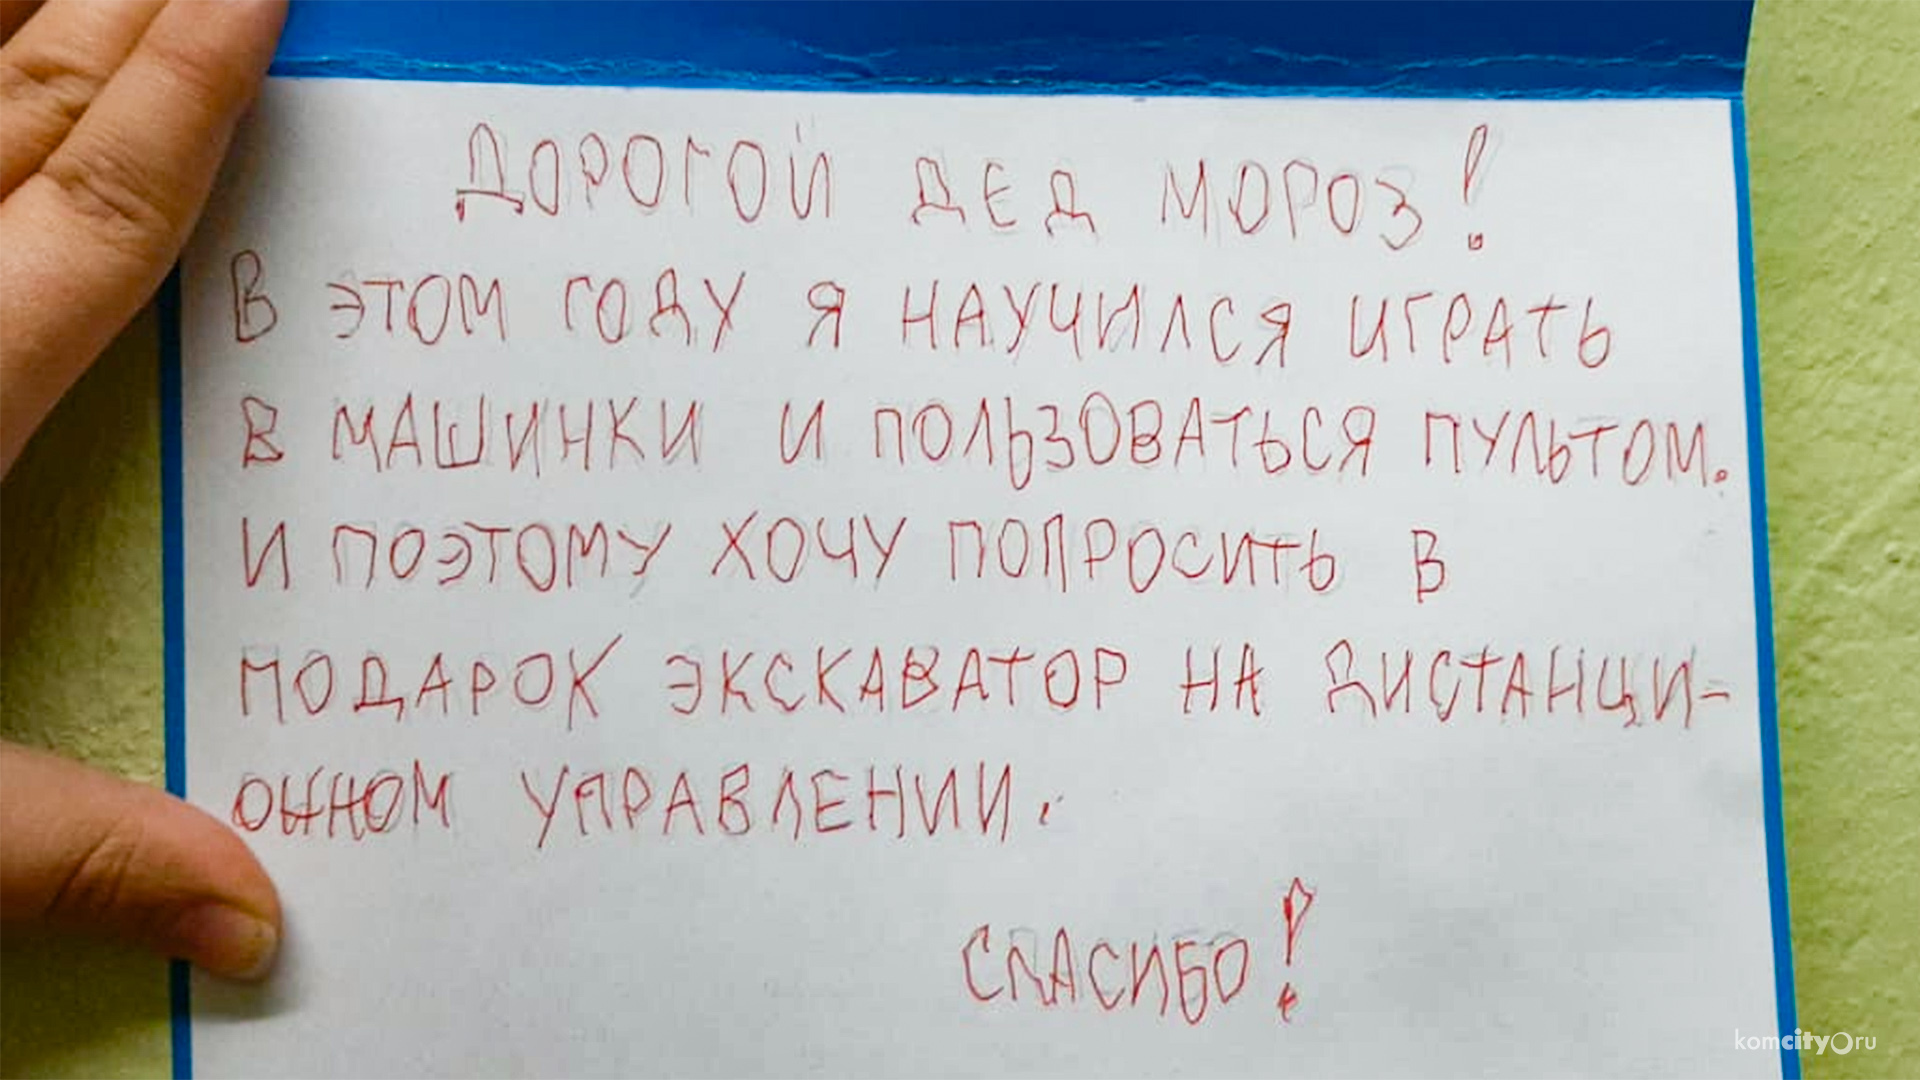 ДОРОГОЙ ДЕД МОРОЗ!
В ЭТОМ ГОДУ Я НАУЧИЛСЯ ИГРАТЬ
В МАШИНКИ И ПОЛЬЗОВАТЬСЯ ПУЛЬТОМ.
И ПОЭТОМУ ХОЧУ ПОПРОСИТЬ В
ПОДАРОК ЭКСКАВАТОР НА ДИСТАНЦИ-
ОННОМ УПРАВЛЕНИИ.
СПАСИБО!
komcity.ru